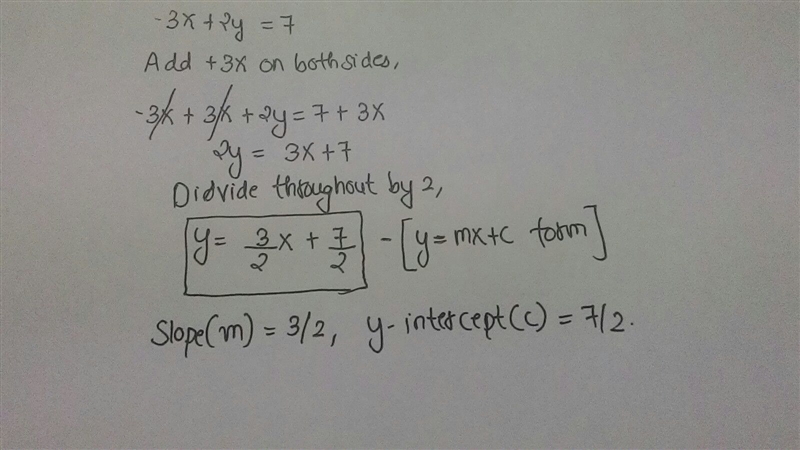 -3x+2y = 7
Add +3x on bothsides,
-3x + 3x + 2y = 7 + 3x
2y = 3x+7
Didvide throughout by 2,
y = 3/2 x + 7/2 - [y = mx+c form]
Slope(m) = 3/2, y-intercept(c) = 7/2.